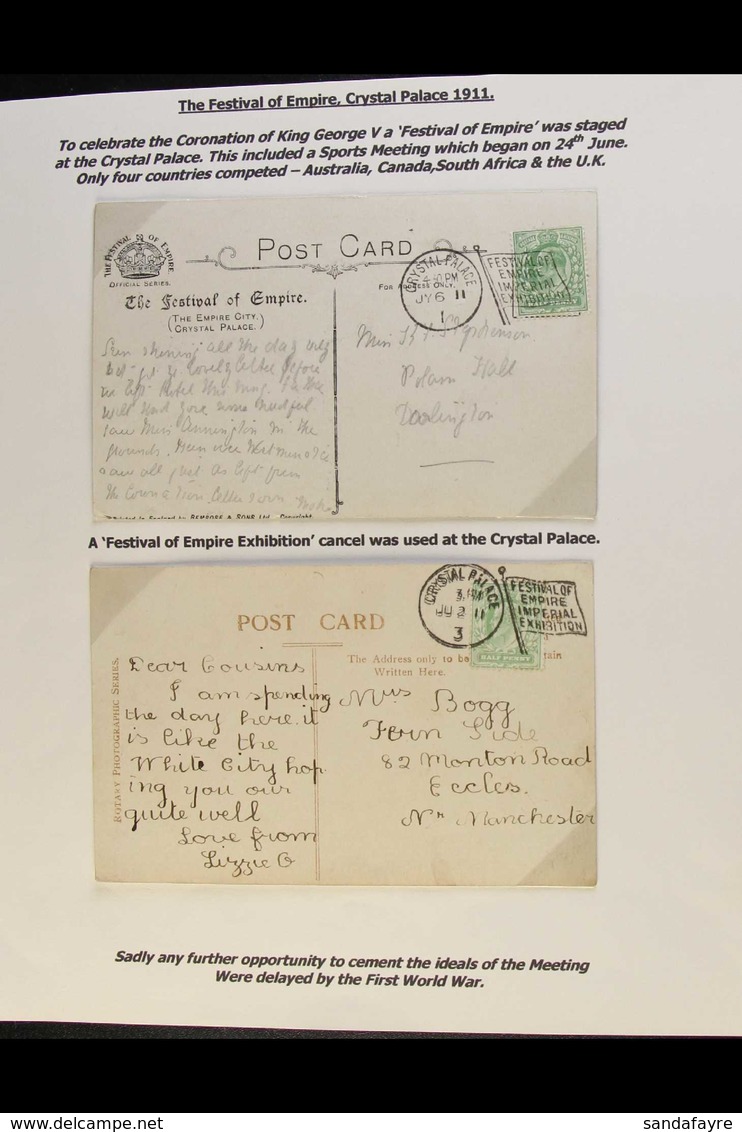 The Festival of Empire, Crystal Palace 1911.
To celebrate the Coronation of King George V a 'Festival of Empire' was staged
at the Crystal Palace. This included a Sports Meeting which began on 24th June.
Only four countries competed – Australia, Canada,South Africa & the U.K.
THE FESTIVAL OF EMPIRE.
OFFICIAL SERIES.
POST CARD
FOR ADDRESS ONLY.
The Festival of Empire.
(THE EMPIRE CITY,
CRYSTAL PALACE.)
CRYSTAL PALACE
JY 6 11
1
FESTIVAL OF
EMPIRE
IMPERIAL
EXHIBITION
all the day
before
Miss Stephenson
Polam Hall
Darlington
Printed in England by BEMROSE & SONS Ltd. Copyright
A 'Festival of Empire Exhibition' cancel was used at the Crystal Palace.
POST CARD
The Address only to be
tain
Written Here.
ROTARY PHOTOGRAPHIC SERIES.
CRYSTAL PALACE
JU 2 11
3
FESTIVAL OF
EMPIRE
IMPERIAL
EXHIBITION
HALF PENNY
Dear Cousins
I am spending
the day here. it
is like the
White City hop
ing you our
quite well
Love from
Lizzie G
Mrs Bogg
Fern Side
82 Monton Road
Eccles.
Nr Manchester
Sadly any further opportunity to cement the ideals of the Meeting
Were delayed by the First World War.
delcampe.net
sandafayre